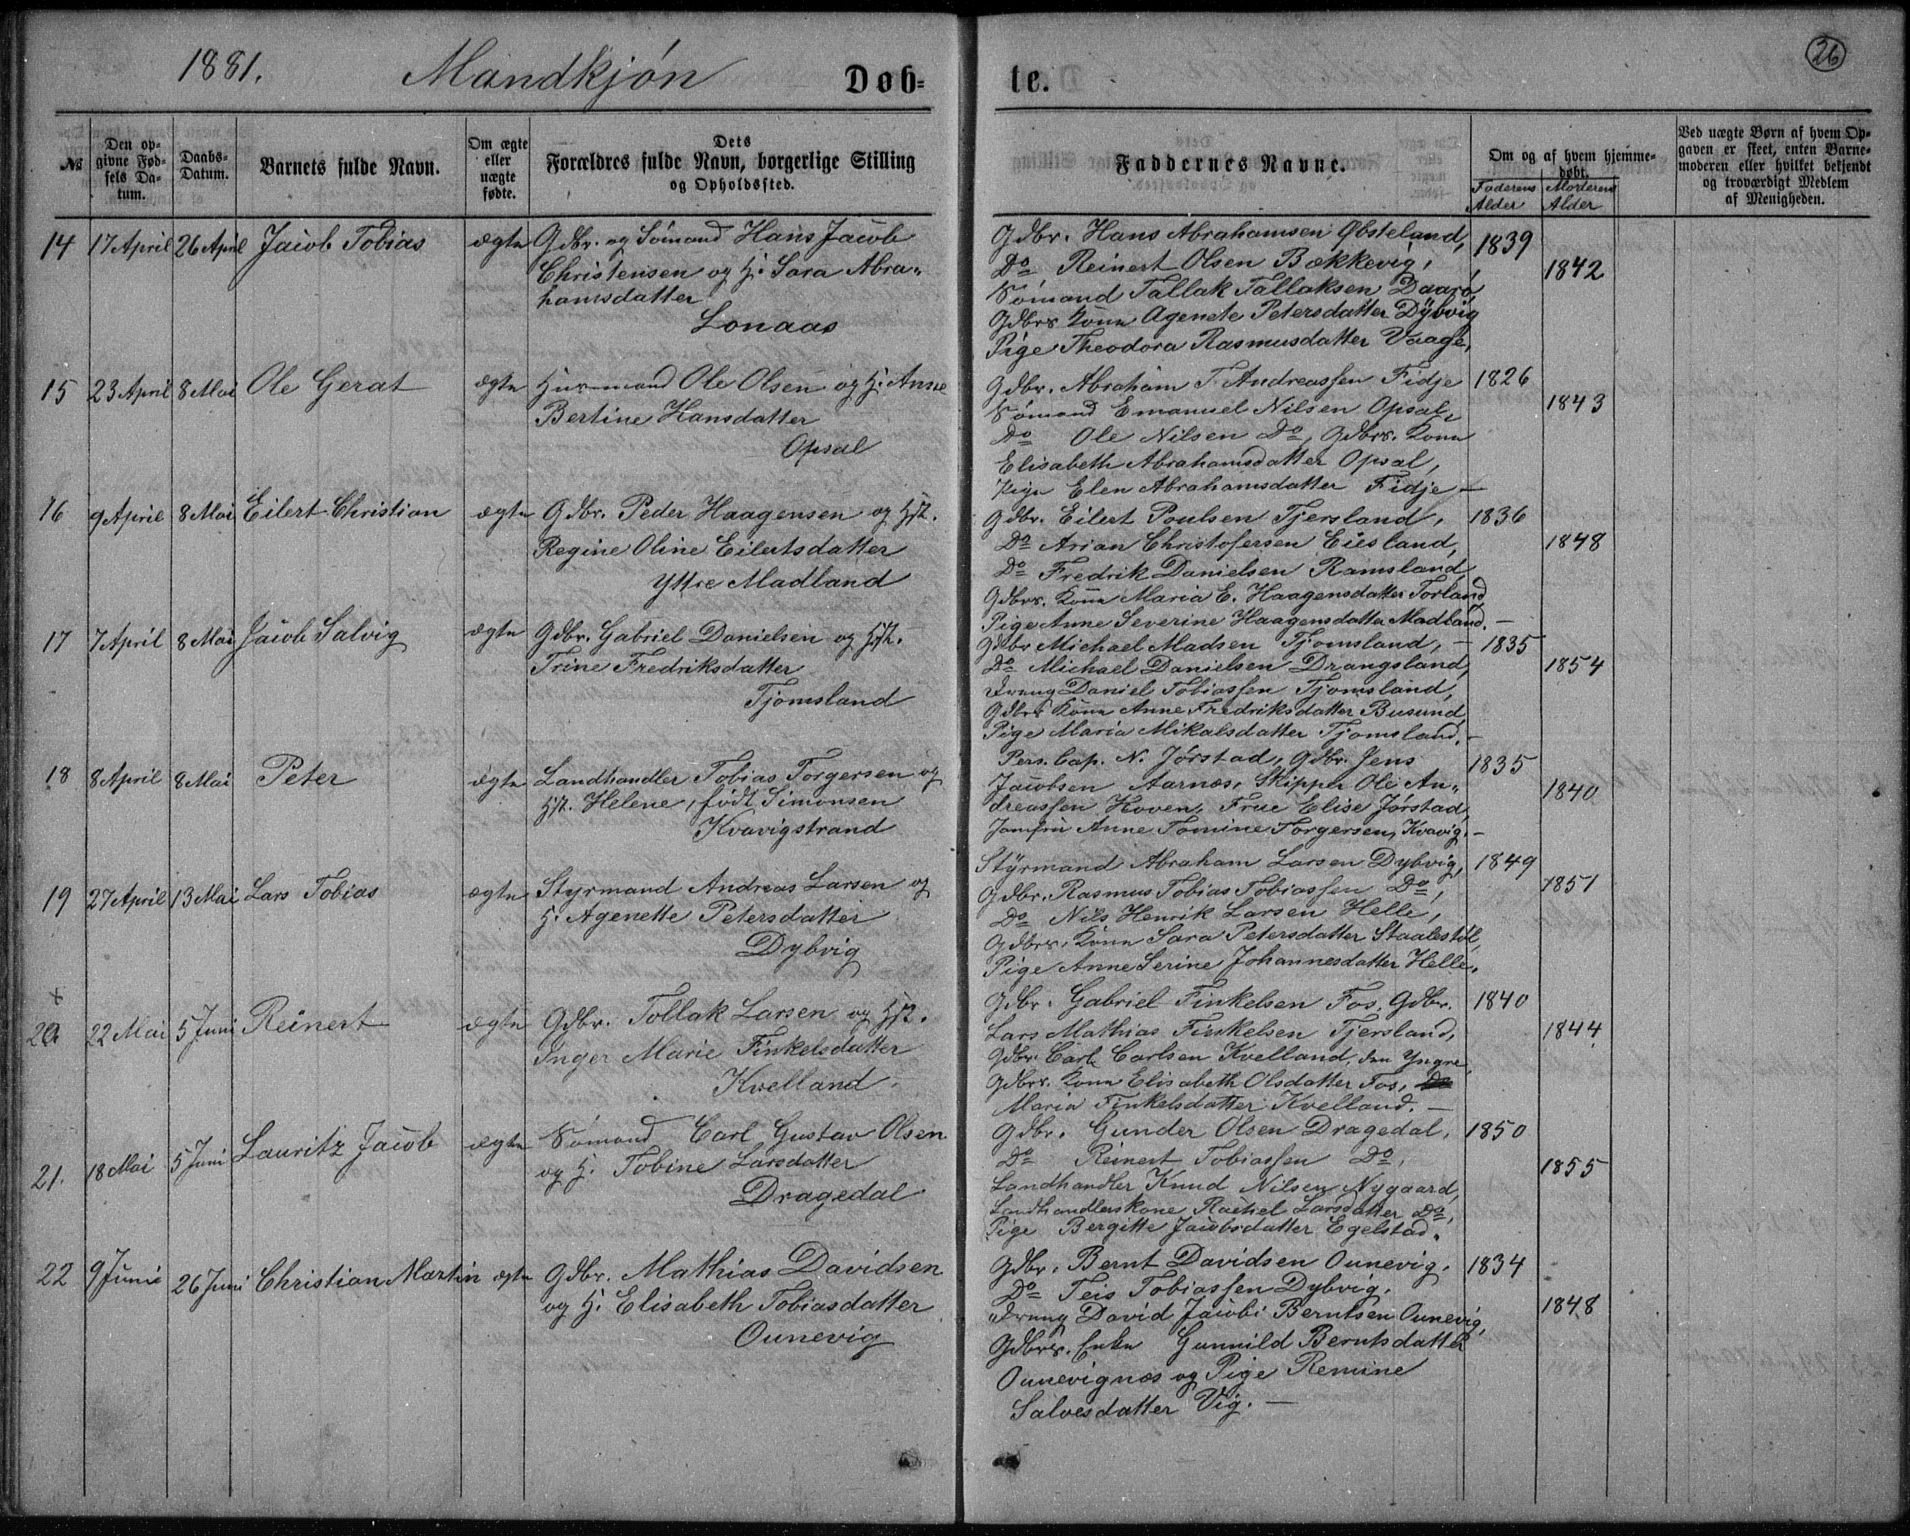 1881. Mandkjøn Døb-
№
Den op-
givne Fød-
sels Da-
tum.
Daabs-
Datum.
Barnets fulde Navn.
Om ægte
eller
uægte
fødte.
Dets
Forældres fulde Navn, borgerlige Stilling
og Opholdssted.
14 17 April 26 April Jacob Tobias ægte Gdbr. og Sømand Hans Jacob
Christensen og H. Sara Abra-
hamsdatter
Lonaas
15 23 April 8 Mai Ole Gerat ægte Husmand Ole Olsen og H. Anne
Bertine Hansdatter
Opsal
16 9 April 8 Mai Eilert Christian ægte Gdbr. Peder Haagensen og Hst.
Regine Oline Eilertsdatter
Yttre Madland
17 7 April 8 Mai Jacob Salvig ægte Gdbr. Gabriel Danielsen og Hst.
Trine Fredriksdatter
Tjomsland
18 8 April 8 Mai Peter ægte Landhandler Tobias Torgersen og
Hst. Helene, født Simonsen
Kvavigstrand
19 27 April 13 Mai Lars Tobias ægte Styrmand Andreas Larsen og
H. Agenette Petersdatter
Dybvig
20 22 Mai 5 Juni Reinert ægte Gdbr. Tollak Larsen og Hst.
Inger Marie Finkelsdatter
Kvelland.
21. 18 Mai 5 Juni Lauritz Jacob ægte Sømand Carl Gustav Olsen
og H. Tobine Larsdatter
Dragedal
22 9 Juni 26 Juni Christian Martin ægte Gdbr. Mathias Davidsen
og H. Elisabeth Tobiasdatter
Ounevig
te.
26
Faddernes Navne.
Om og af hvem hjemme-
døbt.
Faderens Moderens
Alder Alder
Ved uægte Børn af hvem Op-
gaven er skeet, enten Barne-
moderen eller hvilket bekjendt
og troværdigt Medlem
af Menigheden.
Gdbr. Hans Abrahamsen Øbsteland, 1839
Do Reinert Olsen Bækkevig, 1842
Sømand Tallak Tallaksen Daarø,
Gdbrs Kone Agenete Petersdatter Dybvig
Pige Theodora Rasmusdatter Vaage,
Gdbr. Abraham T. Andreassen Fidje 1826
Sømand Emanuel Nilsen Opsal, 1843
Do Ole Nilsen Do, Gdbrs. Kone
Elisabeth Abrahamsdatter Opsal,
Pige Elen Abrahamsdatter Fidje —
Gdbr. Eilert Poulsen Tjersland, 1836
Do Arian Christofersen Eiesland, 1848
Do Fredrik Danielsen Ramsland,
Gdbrs. Kone Maria E. Haagensdatter Torland
Pige Anne Severine Haagensdatter Madland. —
Gdbr Michael Madsen Tjomsland, — 1835
Do Michael Danielsen Drangsland, 1854
Dreng Daniel Tobiassen Tjomsland,
Gdbrs Kone Anne Fredriksdatter Busund,
Pige Maria Mikalsdatter Tjomsland. —
Pers. Cap. N. Jørstad, Gdbr. Jens 1835
Jacobsen Aarnæs, Skipper Ole An- 1840
dreassen Hoven, Frue Elise Jørstad,
Jomfru Anne Tomine Torgersen, Kvavig. —
Styrmand Abraham Larsen Dybvig, 1849
Gdbr. Rasmus Tobias Tobiassen Do, 1851
Do Nils Henrik Larsen Helle,
Gdbrs. Kone Sara Petersdatter Staalestøl,
Pige Anne Serine Johannesdatter Helle.
Gdbr. Gabriel Finkelsen Fos, Gdbr. 1840
Lars Mathias Finkelsen Tjersland, 1844
Gdbr Carl Carlsen Kvelland, den Yngre,
Gdbrs. Kone Elisabeth Olsdatter Fos, Do
Maria Finkelsdatter Kvelland. —
Gdbr. Gunder Olsen Dragedal, 1850
Do Reinert Tobiassen Do, 1855
Landhandler Knud Nilsen Nygaard,
Landhandlerskone Rachel Larsdatter Do,
Pige Bergitte Jacobsdatter Egelstad.
Gdbr. Bernt Davidsen Ounevig. 1834
Do Teis Tobiassen Dybvig. 1848
Dreng David Jacobi Berntsen Ounevig,
Gdbrs. Enke Gunnild Berntsdatter
Ounevignæs og Pige Remine
Salvesdatter Vig. —